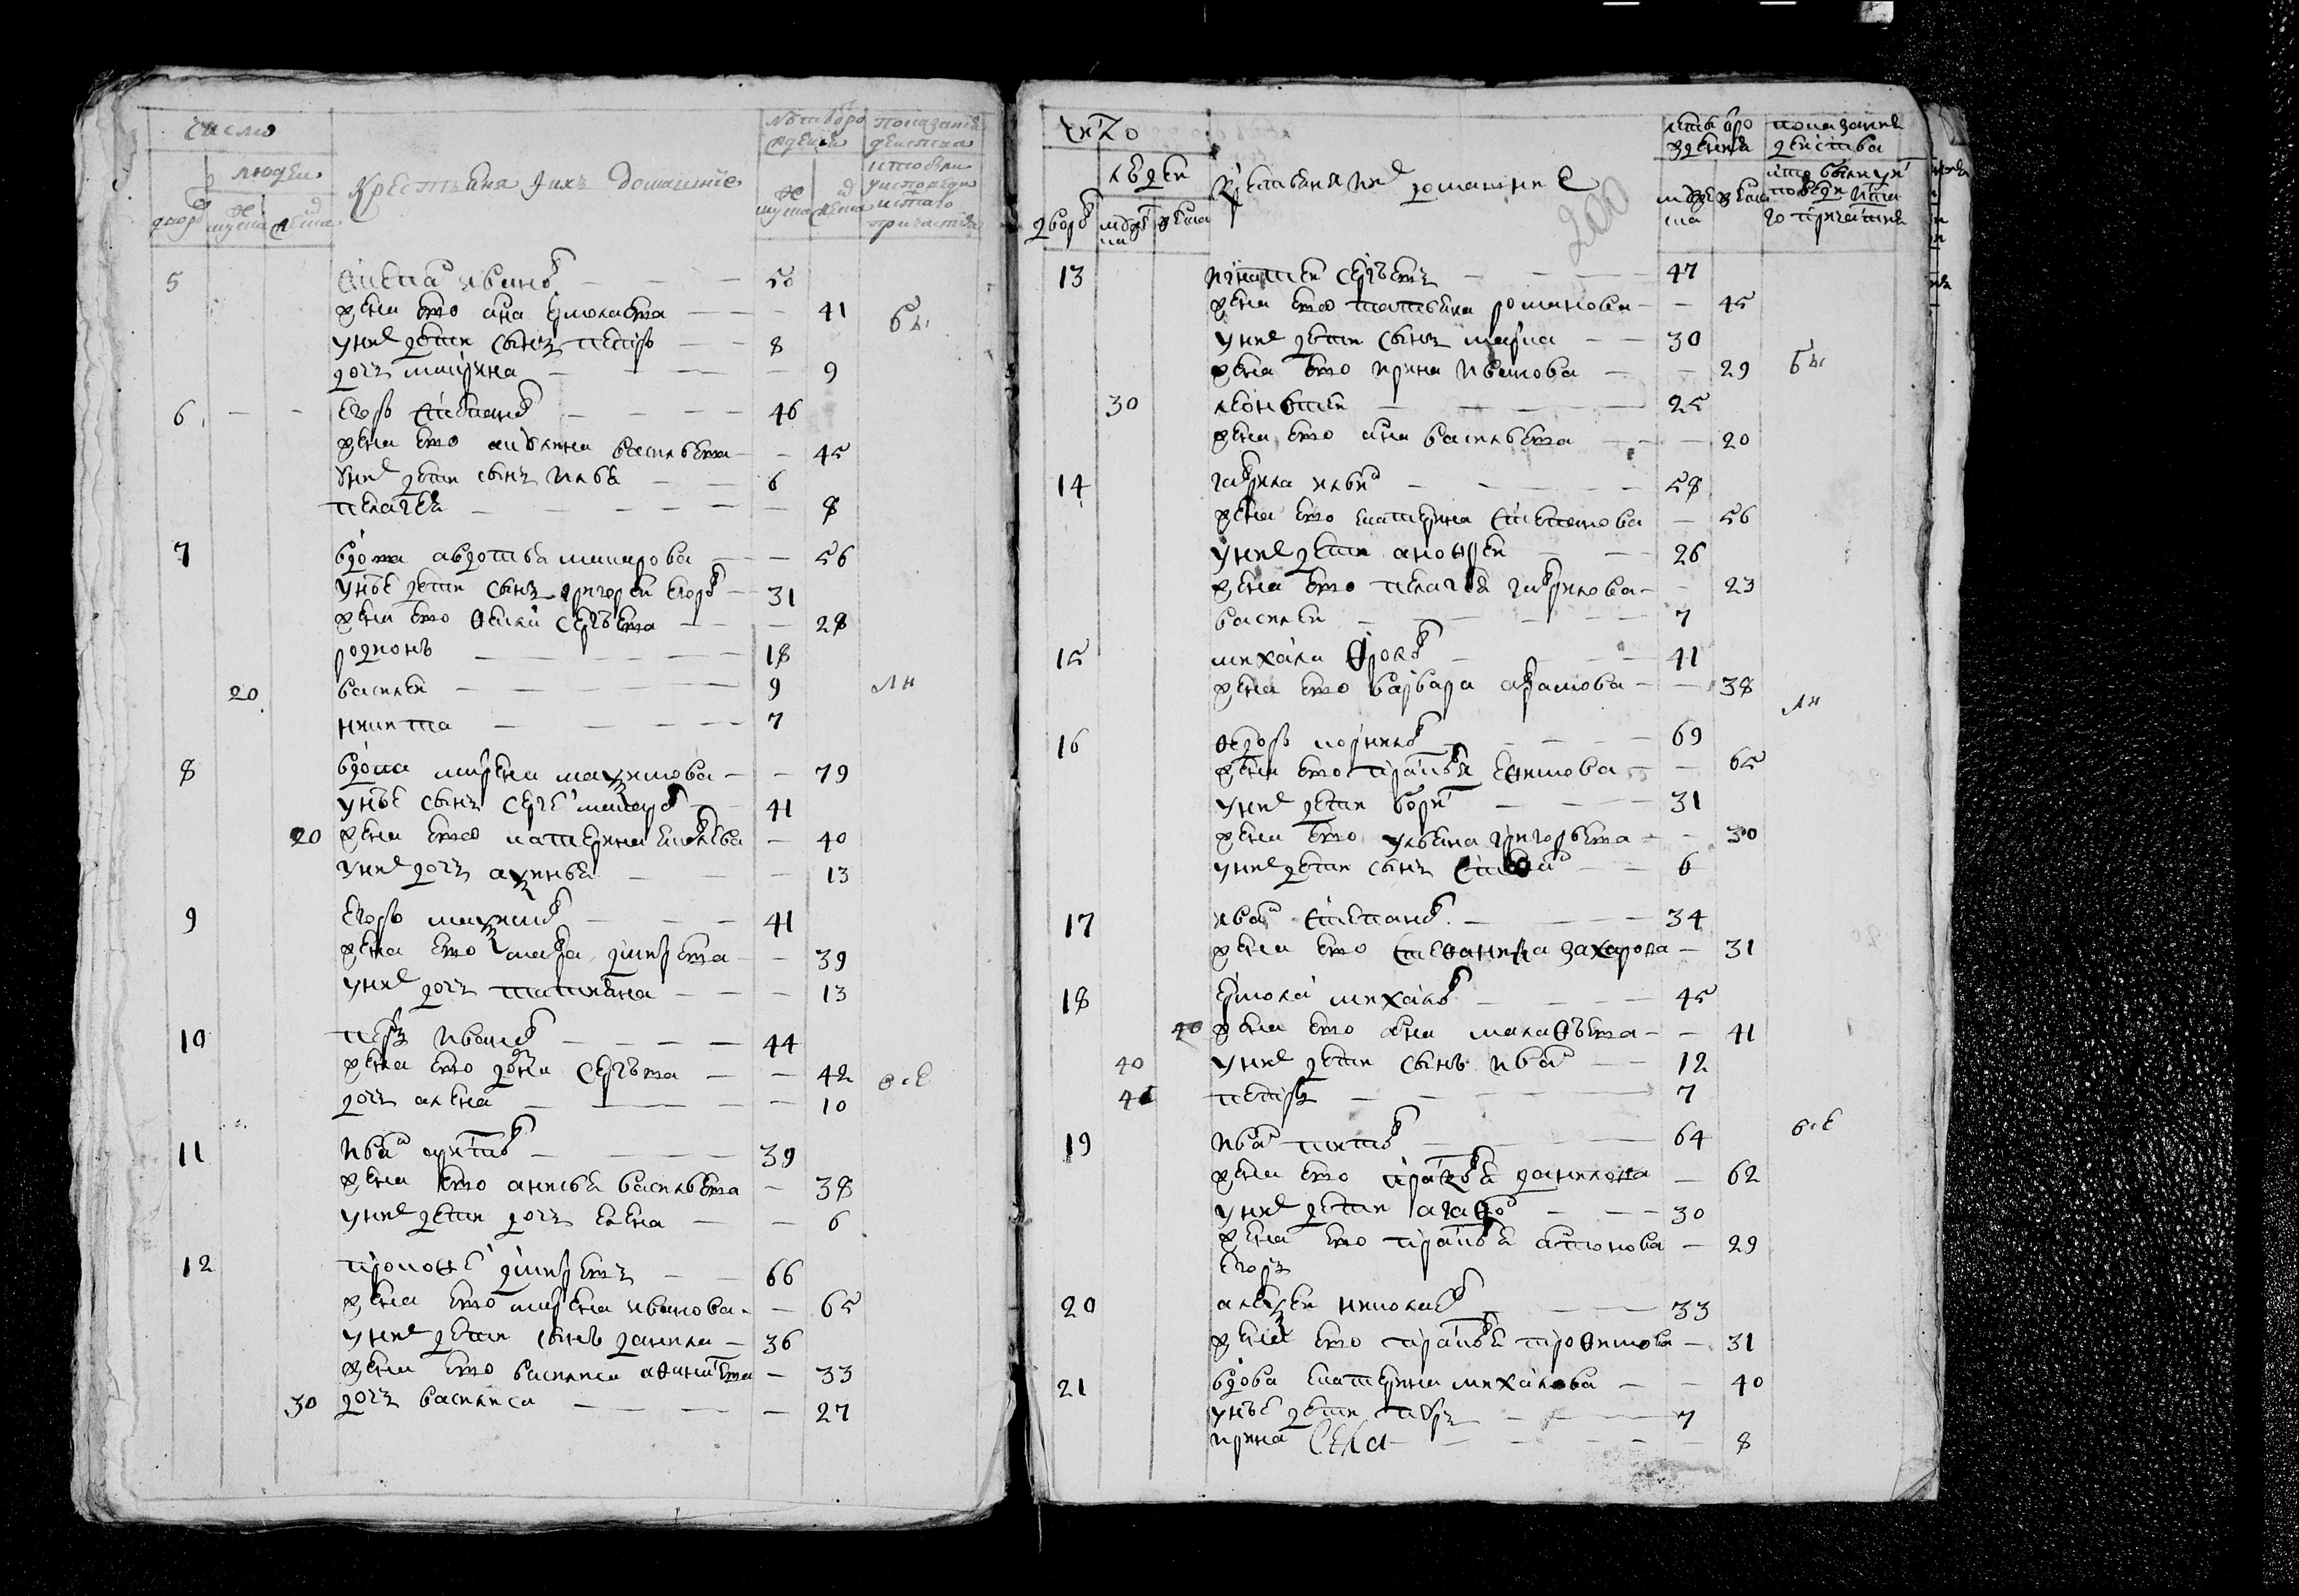 число
людеи
дворовъ
мужеска
женска
Крестьяня и ихъ домашние
лѣтъ от рождения
мужеска
женска
показания действа
кто были у исповеди и святаго причастия
5 Степанъ ивановъ 50
жена ево анна ермолаева 41
были
у нихъ дети сынъ петръ 8
дочь марина 9
6 егоръ степановъ 46
жена ево акулина васильева 45
у нихъ дети сынъ илья 6
пелагея 8
7 вдова авдотья макарова 56
у нее дети сынъ григореи егоровъ 31
жена ево фекла сергѣева 28
родионъ 18
20 василеи 9
ли
никита 7
8 вдова марена максимова 79
у нее сынъ сергей макаровъ 41
20 жена ево катерина 40
у нихъ дочь аксинья 13
9 егоръ максимовъ 41
жена ево мавра дмитрева 39
у нихъ дочь татияна 13
10 петръ ивановъ 44
жена ево домна сергѣева 42
все
дочь алена 10
11 иванъ 39
жена ево анисья васильева 38
у нихъ дети дочь елена 6
12 прокофей дмитревъ 66
жена ево марена иванова 65
у нихъ дети сынъ данила 36
жена ево василиса 33
30 дочь василиса 27
число
людеи
дворовъ
мужеска
женска
Крестьяня и ихъ домашние
200
лѣтъ от рождения
мужеска
женска
показание действа
кто были у исповеди и святаго причастия
13 игнатеи сергѣевъ 47
жена ево татьяна романова 45
у нихъ дети сынъ марка 30
жена ево ирина иванова 29
были
30 леонтеи 25
жена ево анна васильева 20
14 гаврила ильинъ 58
жена ево екатерина степанова 56
у нихъ дети андреи 26
жена ево пелагея гаврилова 23
василеи 7
15 михаила фроловъ 41
жена ево варвара абрамова 38
ли
16 федоръ корниловъ 69
жена ево прасковья ефимова 65
у нихъ дети борисъ 31
жена ево ульяна григорьева 30
у нихъ дети сынъ 6
17 иванъ степановъ 34
жена ево стефанида захарова 31
18 ермолай михаиловъ 45
40 жена ево анна малафѣева 41
40 у нихъ дети сынъ иванъ 12
41 петръ 7
19 иванъ титовъ 64
все
жена ево прасковья данилова 62
у нихъ дети агафонъ 30
жена ево прасковья антонова 29
егоръ
20 алексеи николаевъ 33
жена ево прасковья трофимова 31
21 вдова екатерина михаилова 40
у нее дети петръ 7
ирина 8
села